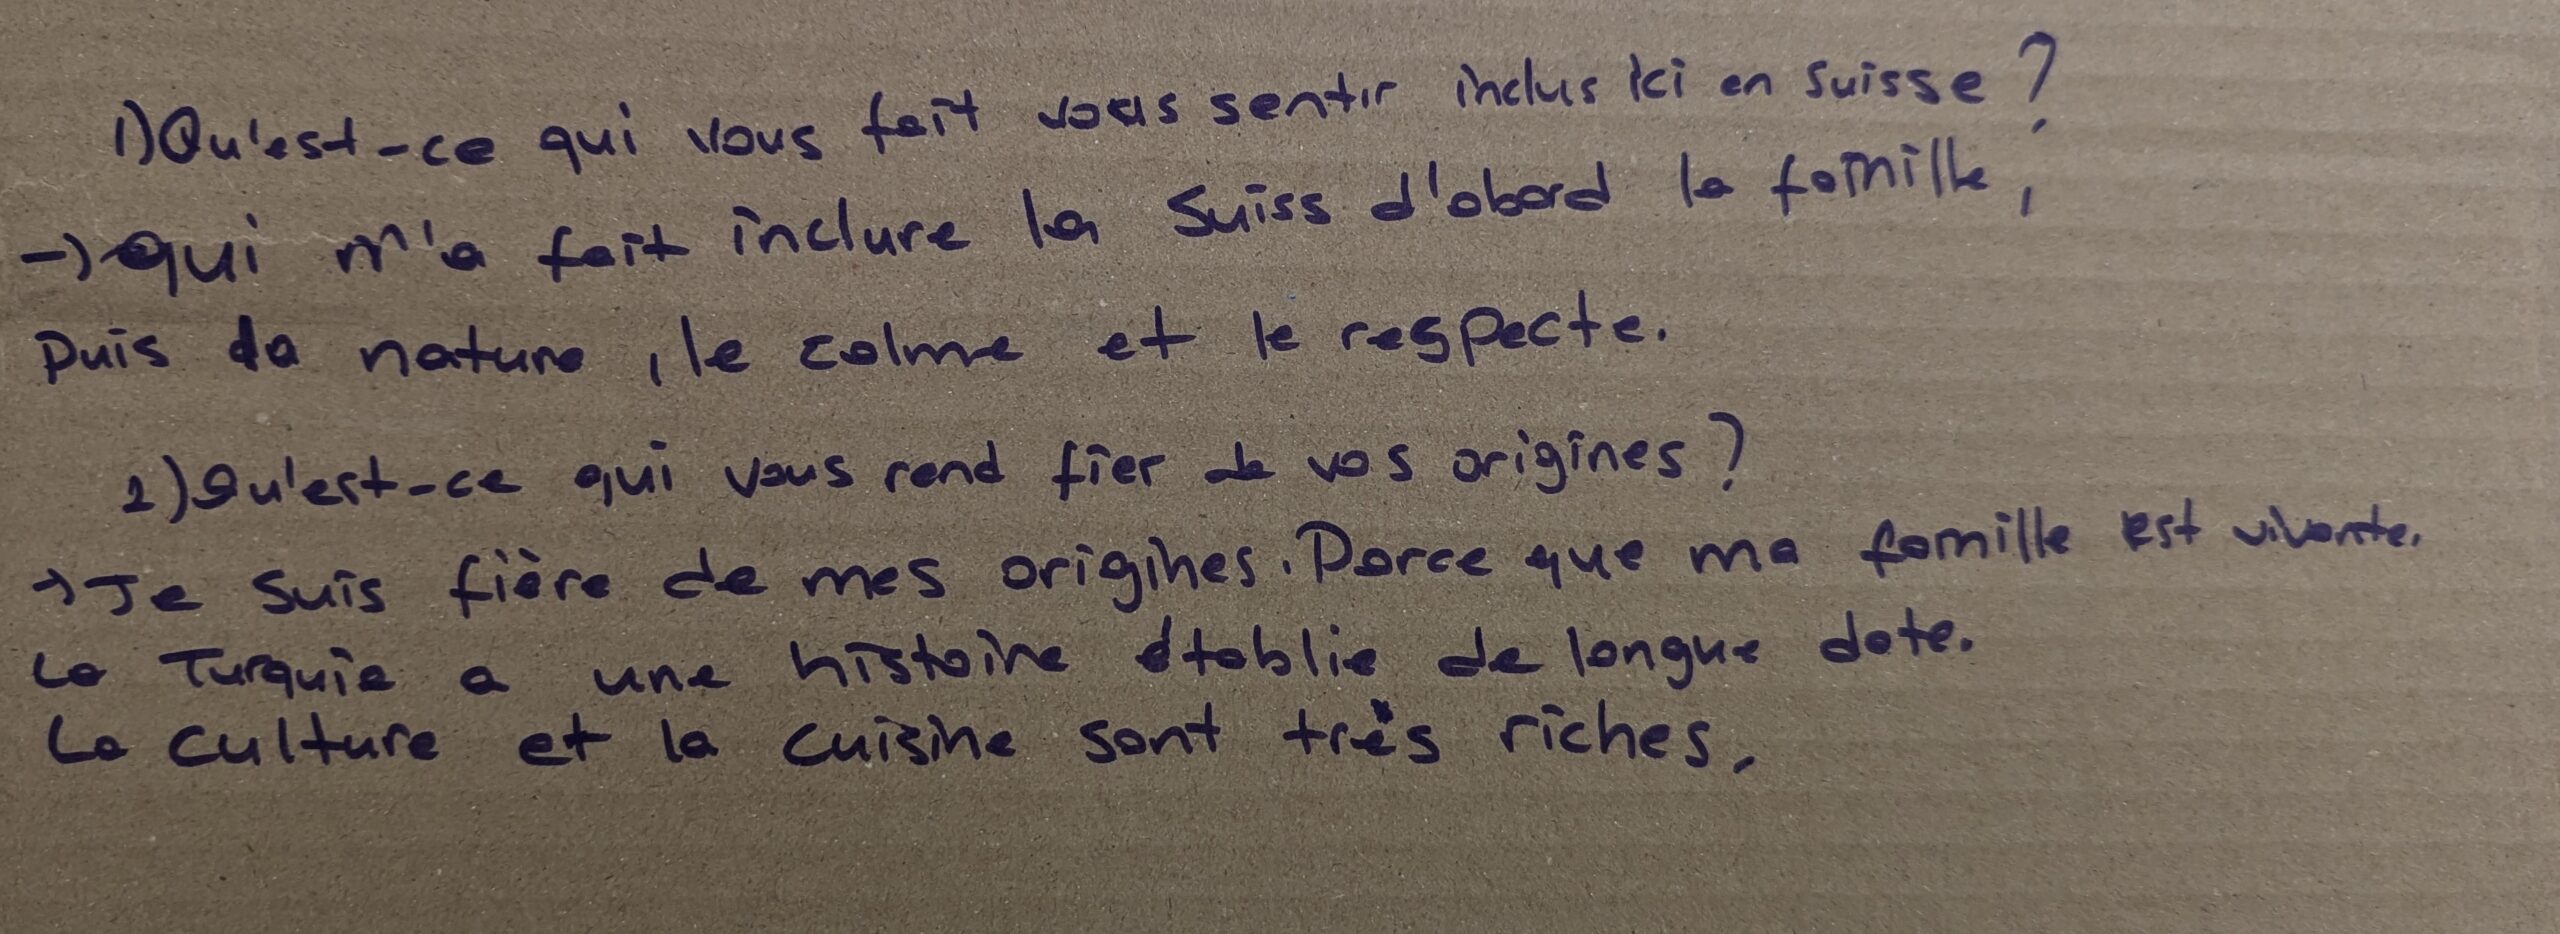 1) Qu'est-ce qui vous fait vous sentir inclus ici en Suisse ?
→ qui m'a fait inclure la Suiss d'abord la famille,
Puis la nature, le calme et le respecte.
2) Qu'est-ce qui vous rend fier de vos origines ?
→ Je suis fière de mes origines. Parce que ma famille est vivante.
La Turquie a une histoire établie de longue date.
La culture et la cuisine sont très riches.